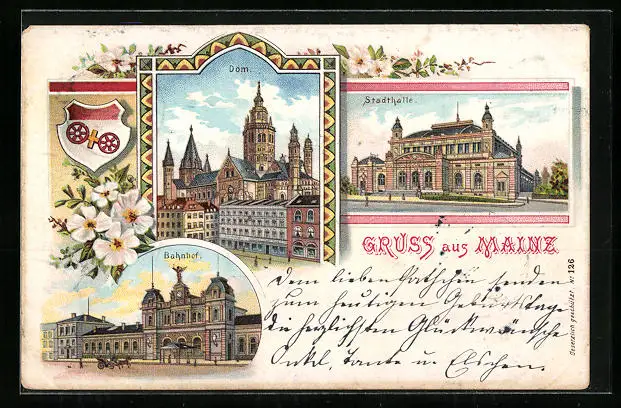 Dom.
Stadthalle.
GRUSS aus MAINZ
Bahnhof.
Dem lieben Pathchen senden
zum heutigen Geburtstage
die herzlichsten Glückwünsche
Onkel, Tante u. Elschen.
Gesetzlich geschützt. Nr 126